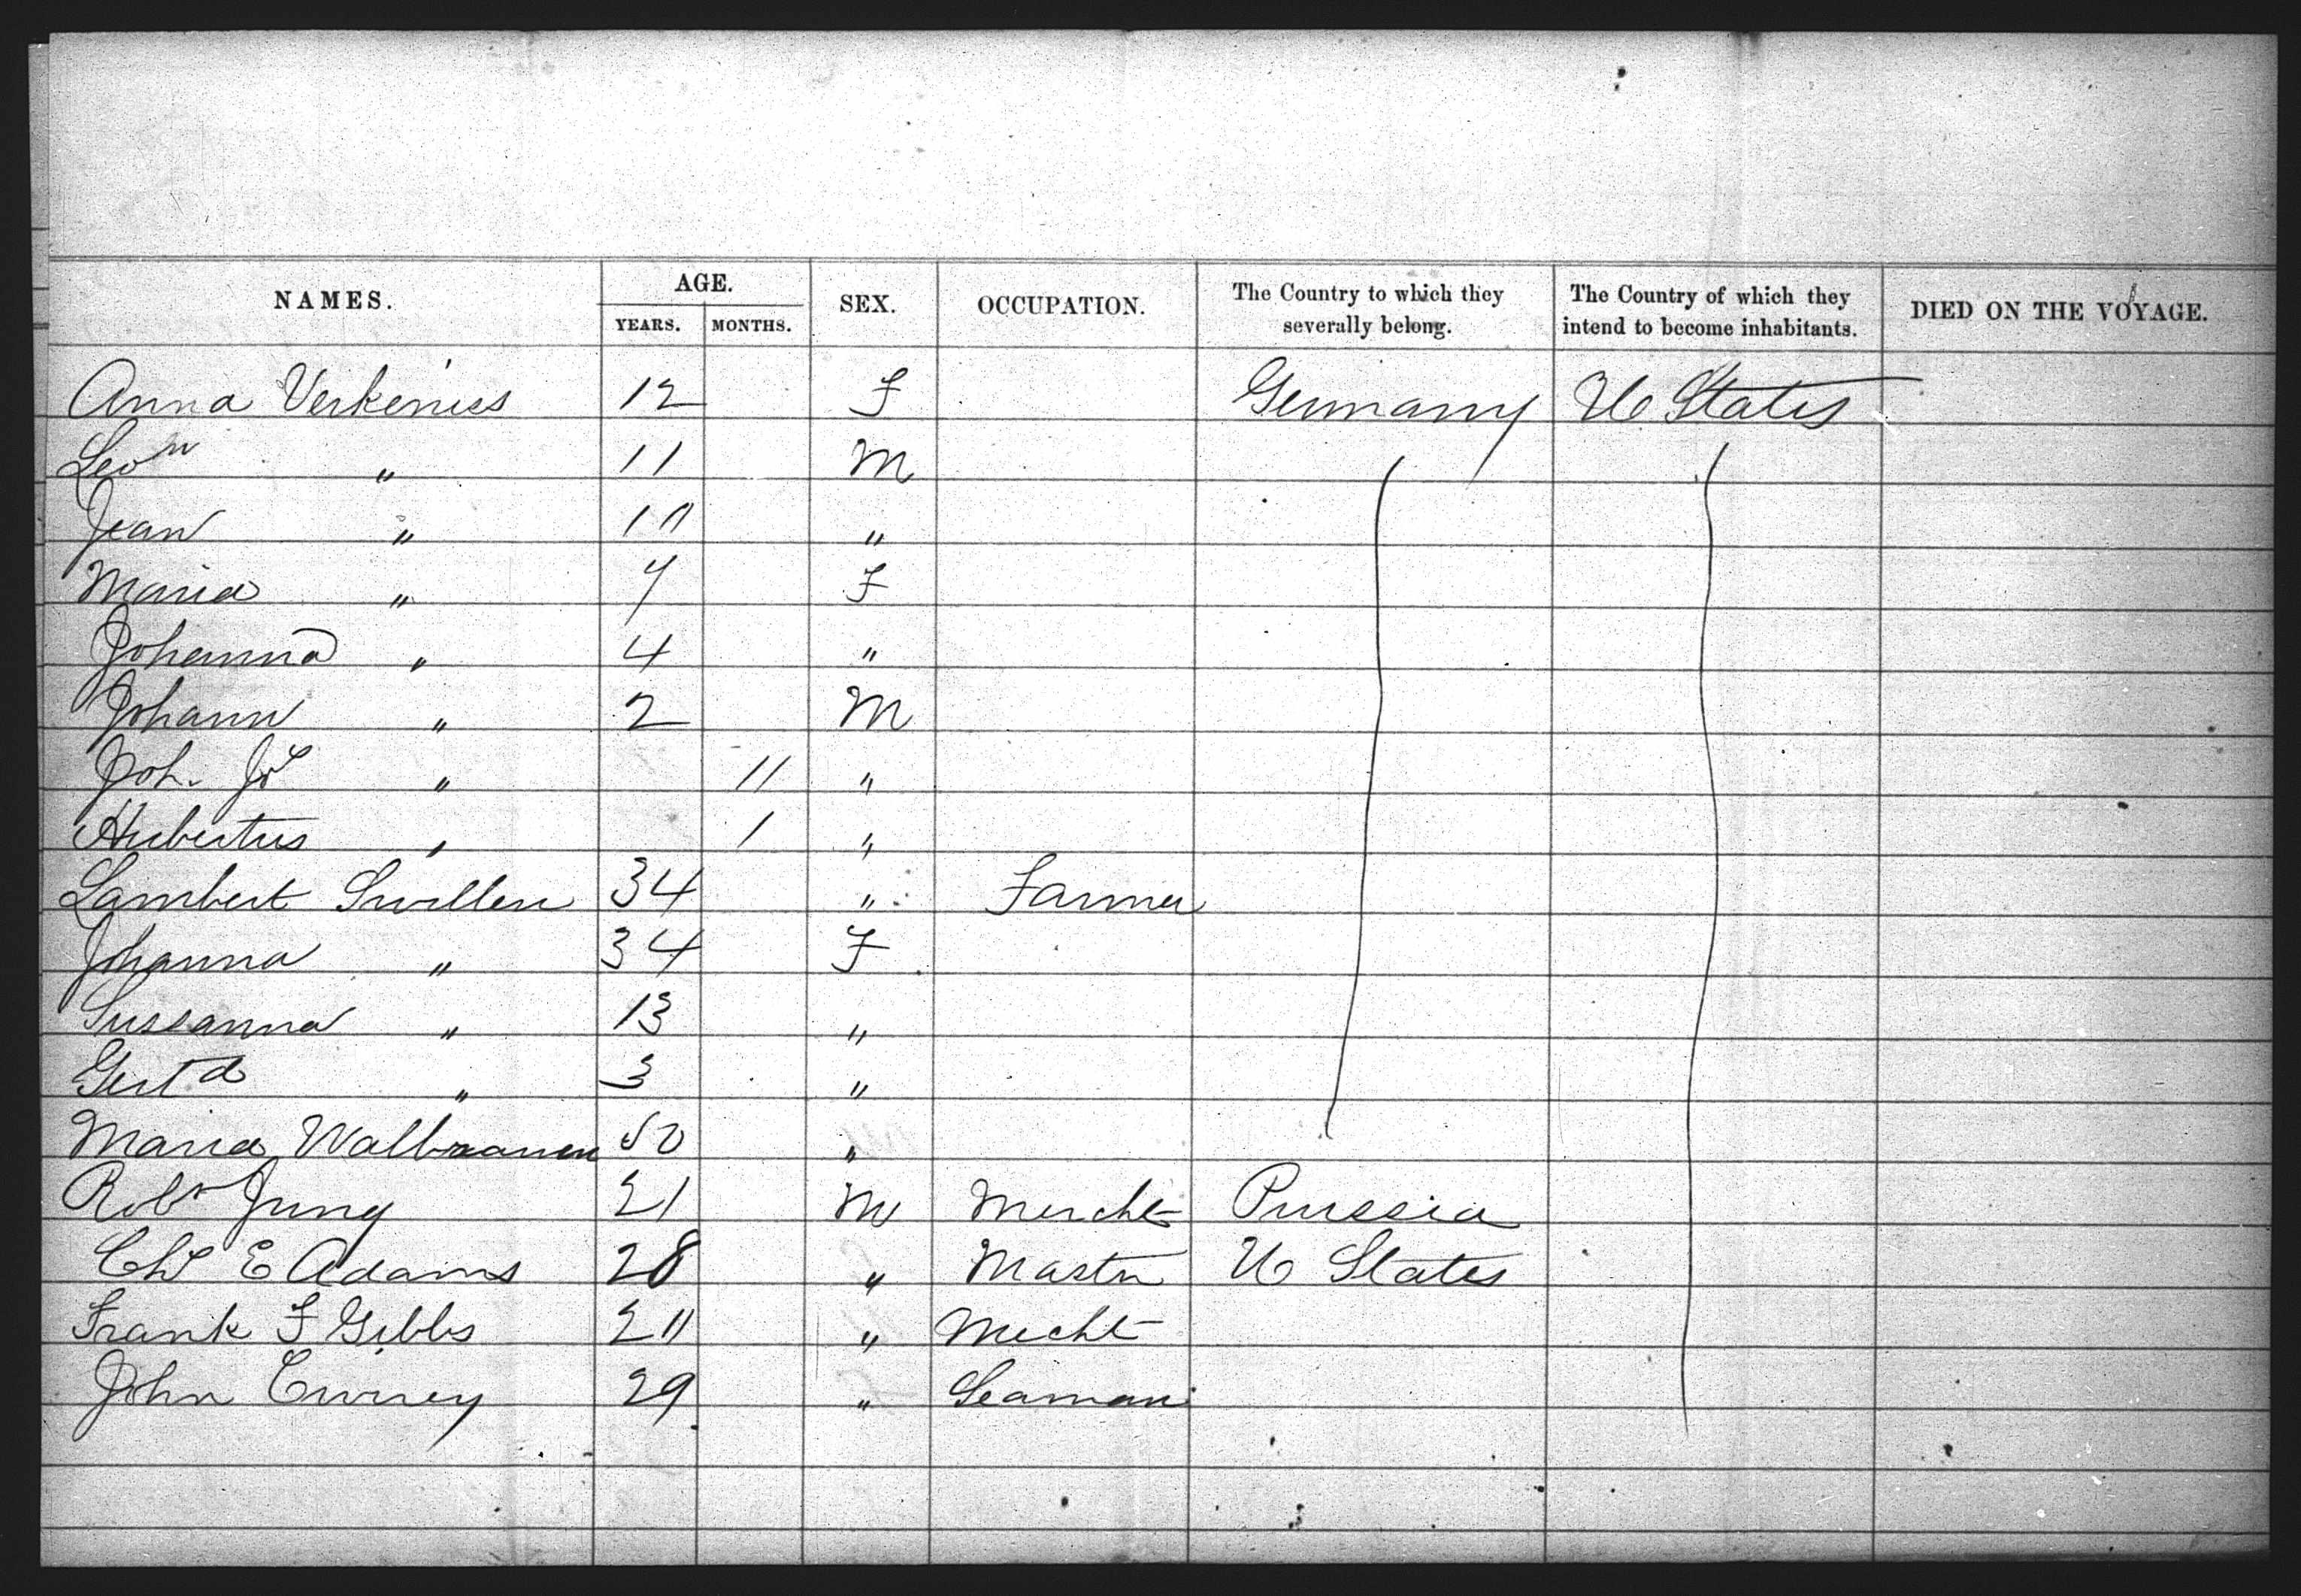 NAMES. AGE. SEX. OCCUPATION. The Country to which they severally belong. The Country of which they intend to become inhabitants. DIED ON THE VOYAGE.
YEARS. MONTHS.
Anna Verkeniess 12 F Germany U. States
Leon " 11 M
Jean " "
Maria " 7 F
Johanna " 4 "
Johann " 2 M
Joh. Js " 11 "
Hubertus " 1 "
Lambert Swillen 34 " Farmer
Johanna " 34 F
Sussanna " 13 "
Gertd " 3 "
Maria Walbraanen 50 "
Robt Jung 21 M Mercht Prussia
Chs E Adams 28 " Mastr U States
Frank F Gibbs " Mecht
John Currey 29 " Seaman